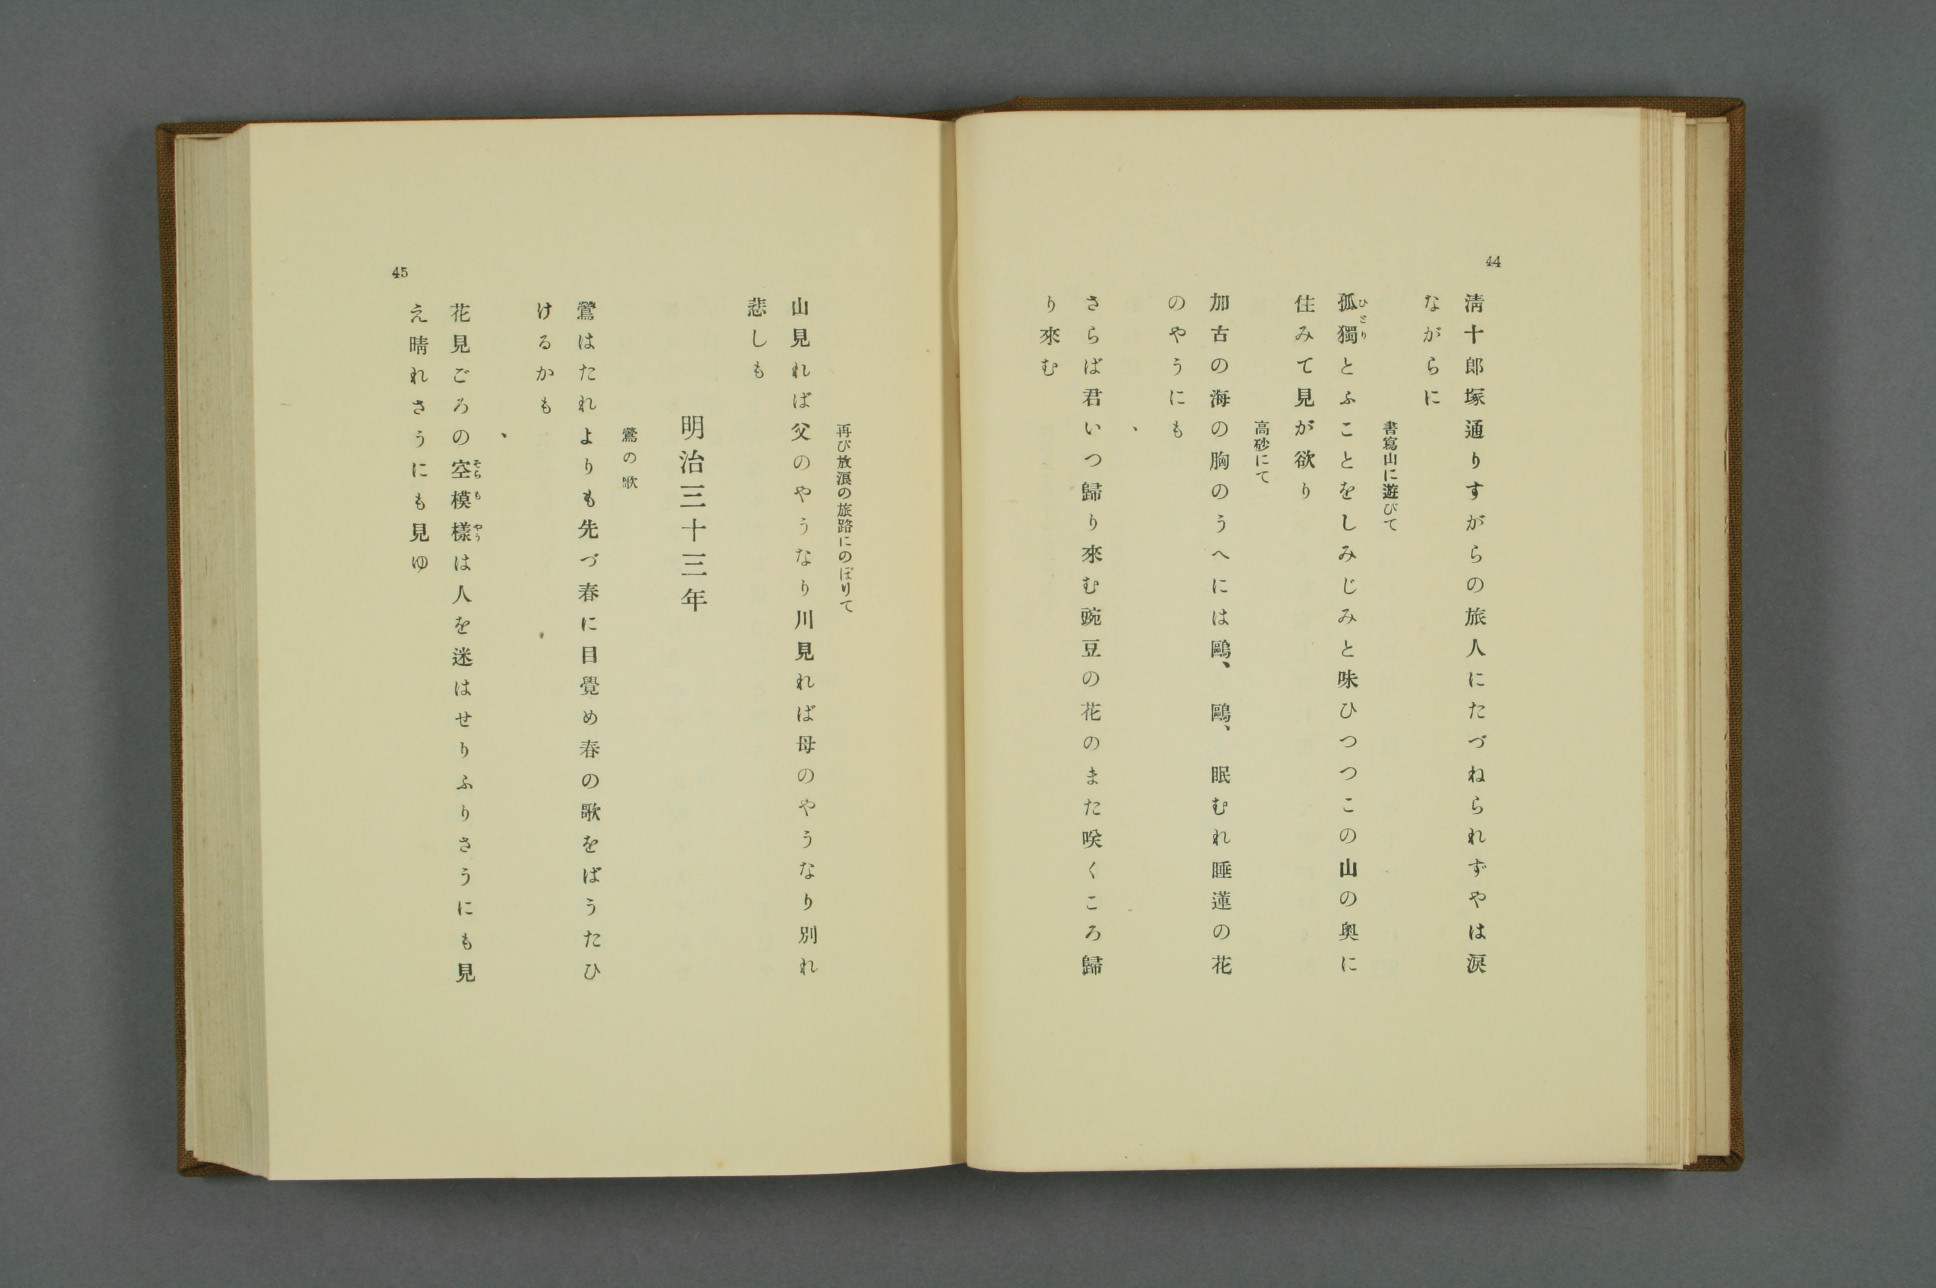 44
淸十郎塚通りすがらの旅人にたづねられずやは淚
ながらに
書寫山に遊びて
孤獨とふことをしみじみと味ひつつこの山の奧に
ひとり
住みて見が欲り
高砂にて
加古の海の胸のうへには鷗、鷗、眠むれ睡蓮の花
のやうにも
、
さらば君いつ歸り來む豌豆の花のまた咲くころ歸
り來む
45
再び放浪の旅路にのぼりて
山見れば父のやうなり川見れば母のやうなり別れ
悲しも
明治三十三年
鶯の歌
鶯はたれよりも先づ春に目覺め春の歌をばうたひ
けるかも
、
花見ごろの空模樣は人を迷はせりふりさうにも見
そらもやう
え晴れさうにも見ゆ